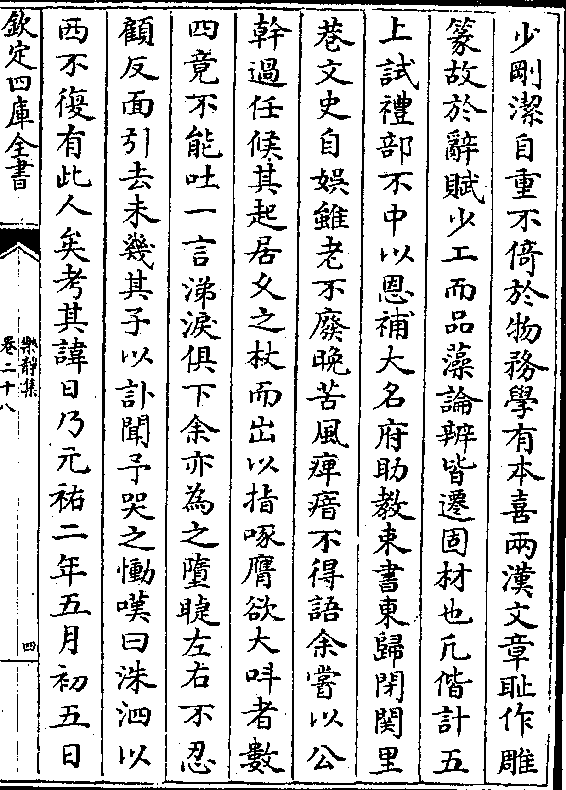 少剛潔自重不倚於物務學有本喜兩漢文章耻作雕
篆故於辭賦少工而品藻論辨皆遷固材也凡偕計五
上試禮部不中以恩補大名府助教東書東歸閉關里
巷文史自娱雖老不廢晩苦風痺瘖不得語余嘗以公
幹過任候其起居父之杖而出以指啄膺欲大呌者數
四竟不能吐一言涕淚俱下余亦為之墮睫左右不忍
顧反面引去未幾其子以訃聞予哭之慟嘆曰洙泗以
西不復有此人矣考其諱日乃元祐二年五月初五日
欽定四庫全書
樂靜集
卷二十八
四